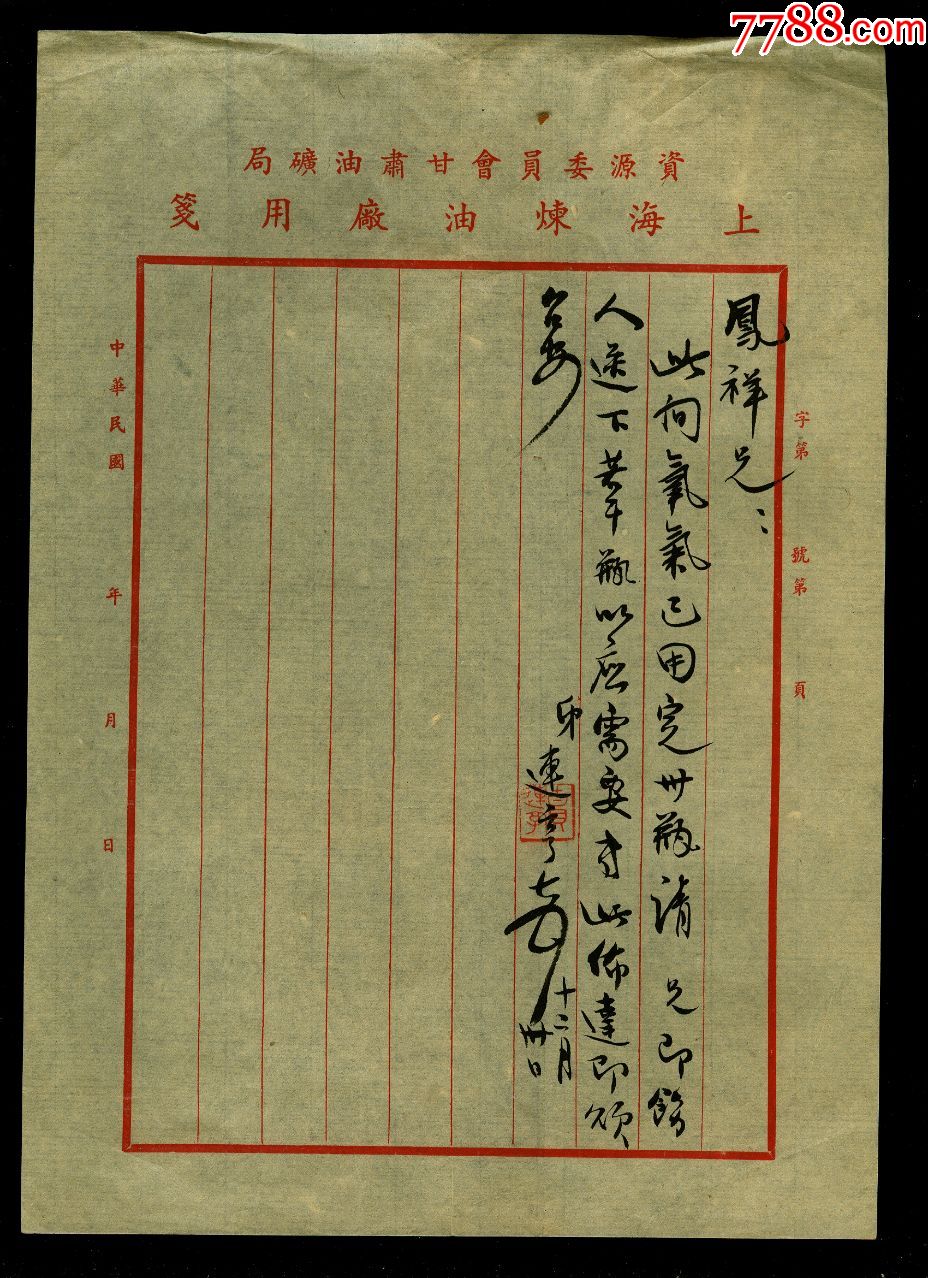 7788.com
資源委員會甘肅油礦局
上海煉油廠用箋
字第 號第 頁
鳳祥兄：
此间氧氣已用完卅瓶請 兄即飭
人送下若干瓶以应需要专此佈達即頌
台安
弟連亨
十二月
卅日
中華民國 年 月 日